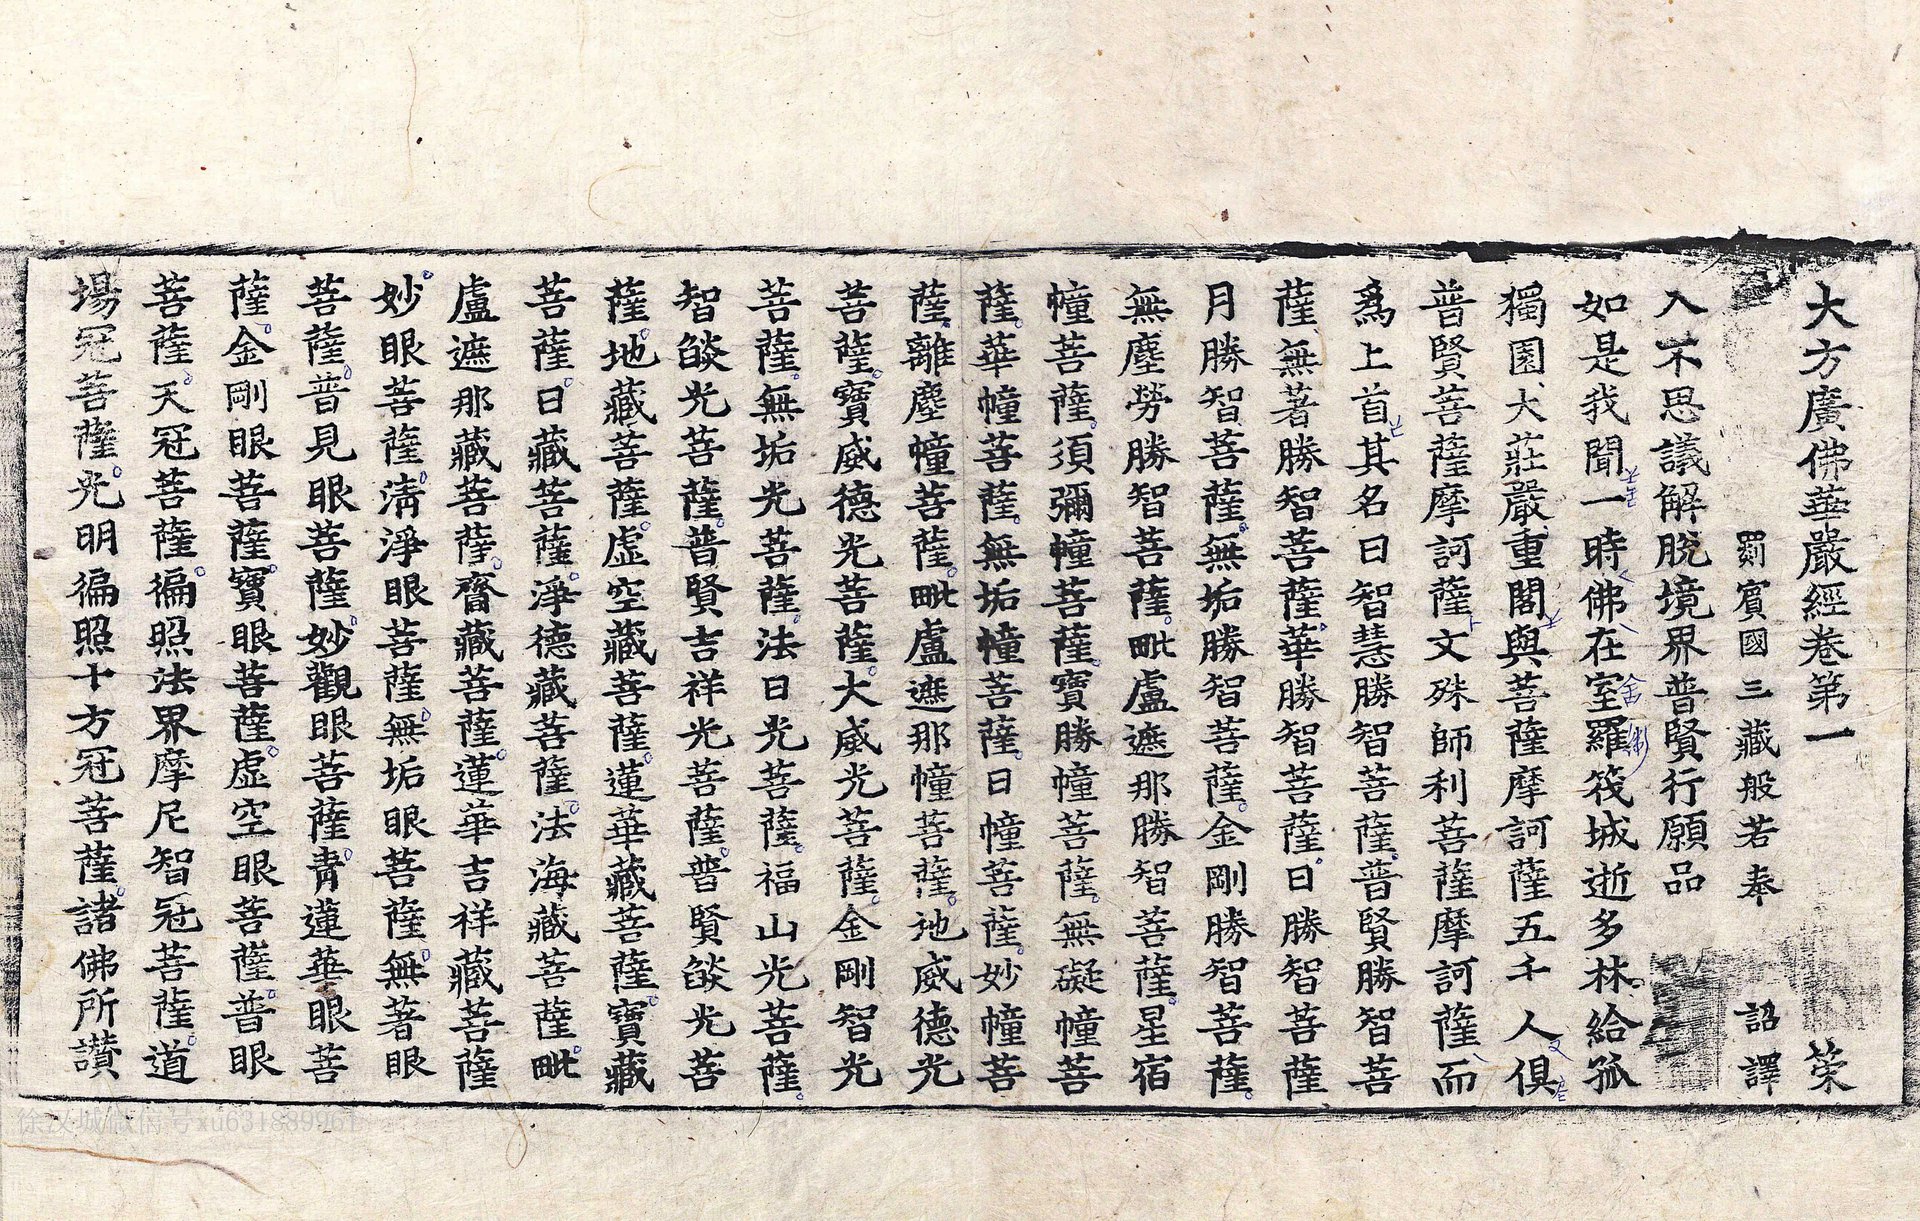 大方廣佛華嚴經卷第一 榮
罽賓國三藏般若奉 詔譯
入不思議解脫境界普賢行願品
如是我聞一時佛在室羅筏城逝多林給孤
獨園大莊嚴重閣與菩薩摩訶薩五千人俱
普賢菩薩摩訶薩文殊師利菩薩摩訶薩而
爲上首其名曰智慧勝智菩薩普賢勝智菩
薩無著勝智菩薩華勝智菩薩日勝智菩薩
月勝智菩薩無垢勝智菩薩金剛勝智菩薩
無塵勞勝智菩薩毗盧遮那勝智菩薩星宿
幢菩薩須彌幢菩薩寶勝幢菩薩無礙幢菩
薩華幢菩薩無垢幢菩薩日幢菩薩妙幢菩
薩離塵幢菩薩毗盧遮那幢菩薩地威德光
菩薩寶威德光菩薩大威光菩薩金剛智光
菩薩無垢光菩薩法日光菩薩福山光菩薩
智燄光菩薩普賢吉祥光菩薩普賢燄光菩
薩地藏菩薩虛空藏菩薩蓮華藏菩薩寶藏
菩薩日藏菩薩淨德藏菩薩法海藏菩薩毗
盧遮那藏菩薩齋藏菩薩蓮華吉祥藏菩薩
妙眼菩薩清淨眼菩薩無垢眼菩薩無著眼
菩薩普見眼菩薩妙觀眼菩薩青蓮華眼菩
薩金剛眼菩薩寶眼菩薩虛空眼菩薩普眼
菩薩天冠菩薩徧照法界摩尼智冠菩薩道
場冠菩薩光明徧照十方冠菩薩諸佛所讚
徐汉城微信号xu631889961